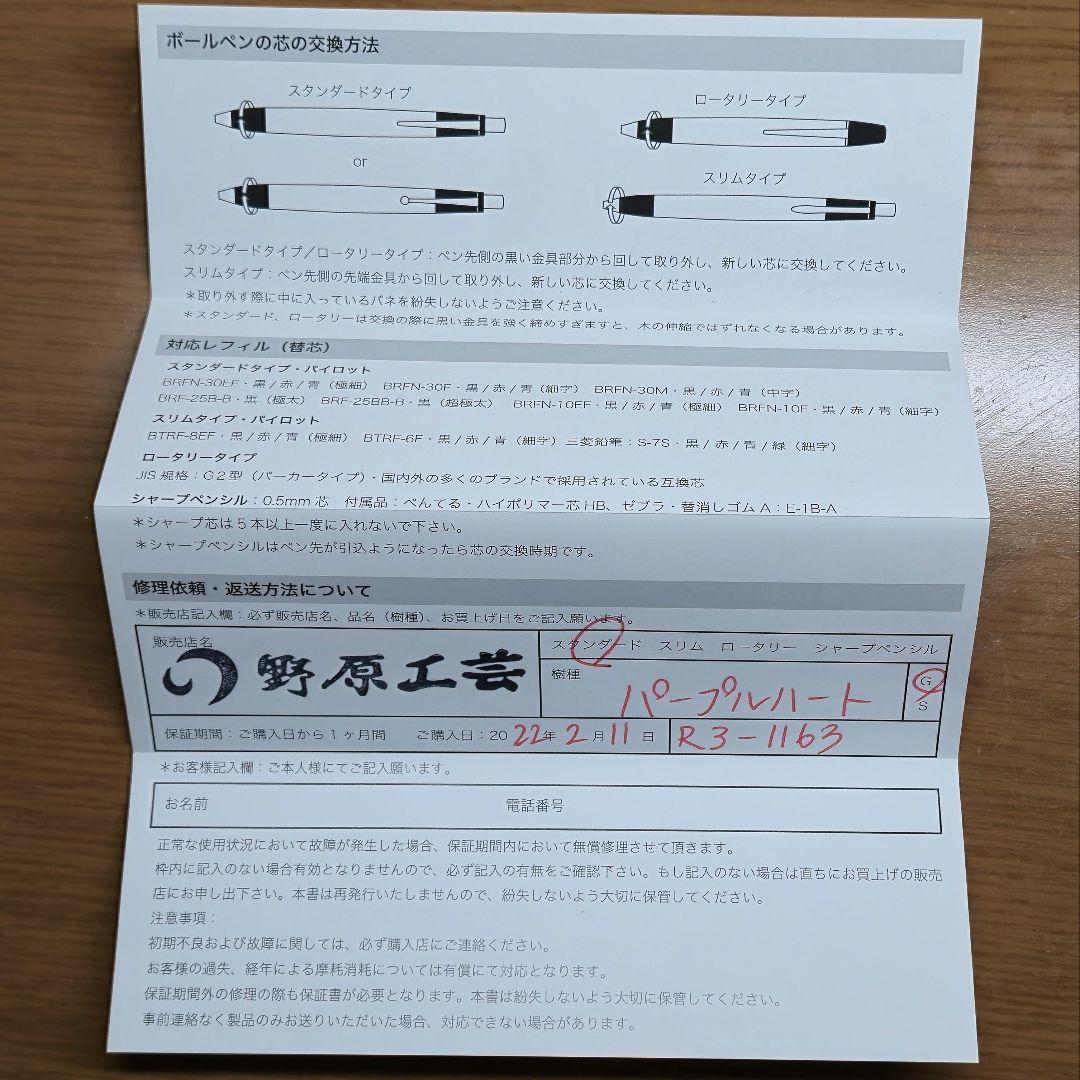 ボールペンの芯の交換方法
スタンダードタイプ
ロータリータイプ
or
スリムタイプ
スタンダードタイプ／ロータリータイプ：ペン先側の黒い金具部分から回して取り外し、新しい芯に交換してください。
スリムタイプ：ペン先側の先端金具から回して取り外し、新しい芯に交換してください。
＊取り外す際に中に入っているバネを紛失しないようご注意ください。
＊スタンダード、ロータリーは交換の際に黒い金具を強く締めすぎますと、木の伸縮ではずれなくなる場合があります。
対応レフィル（替芯）
スタンダードタイプ・パイロット
BRFN-30EF・黒/赤/青（極細） BRFN-30F・黒/赤/青（細字） BRFN-30M・黒/赤/青（中字）
BRF-25B-B・黒（極太） BRF-25BB-B・黒（超極太） BRFN-10EF・黒/赤/青（極細） BRFN-10F・黒/赤/青（細字）
スリムタイプ・パイロット
BTRF-8EF・黒/赤/青（極細） BTRF-6F・黒/赤/青（細字）三菱鉛筆：S-7S・黒/赤/青/緑（細字）
ロータリータイプ
JIS規格：G2型（パーカータイプ）・国内外の多くのブランドで採用されている互換芯
シャープペンシル：0.5mm芯　付属品：ぺんてる・ハイポリマー芯HB、ゼブラ・替消しゴムA：E-1B-A
＊シャープ芯は5本以上一度に入れないで下さい。
＊シャープペンシルはペン先が引込ようになったら芯の交換時期です。
修理依頼・返送方法について
＊販売店記入欄：必ず販売店名、品名（樹種）、お買上げ日をご記入願います。
販売店名
野原工芸
スタンダード　スリム　ロータリー　シャープペンシル
樹種
パープルハート
G
S
保証期間：ご購入日から1ヶ月間　ご購入日：2022年2月11日
R3-1163
＊お客様記入欄：ご本人様にてご記入願います。
お名前　電話番号
正常な使用状況において故障が発生した場合、保証期間内において無償修理させて頂きます。
枠内に記入のない場合有効となりませんので、必ず記入の有無をご確認下さい。もし記入のない場合は直ちにお買上げの販売
店にお申し出下さい。本書は再発行いたしませんので、紛失しないよう大切に保管してください。
注意事項：
初期不良および故障に関しては、必ず購入店にご連絡ください。
お客様の過失、経年による摩耗消耗については有償にて対応となります。
保証期間外の修理の際も保証書が必要となります。本書は紛失しないよう大切に保管してください。
事前連絡なく製品のみお送りいただいた場合、対応できない場合があります。